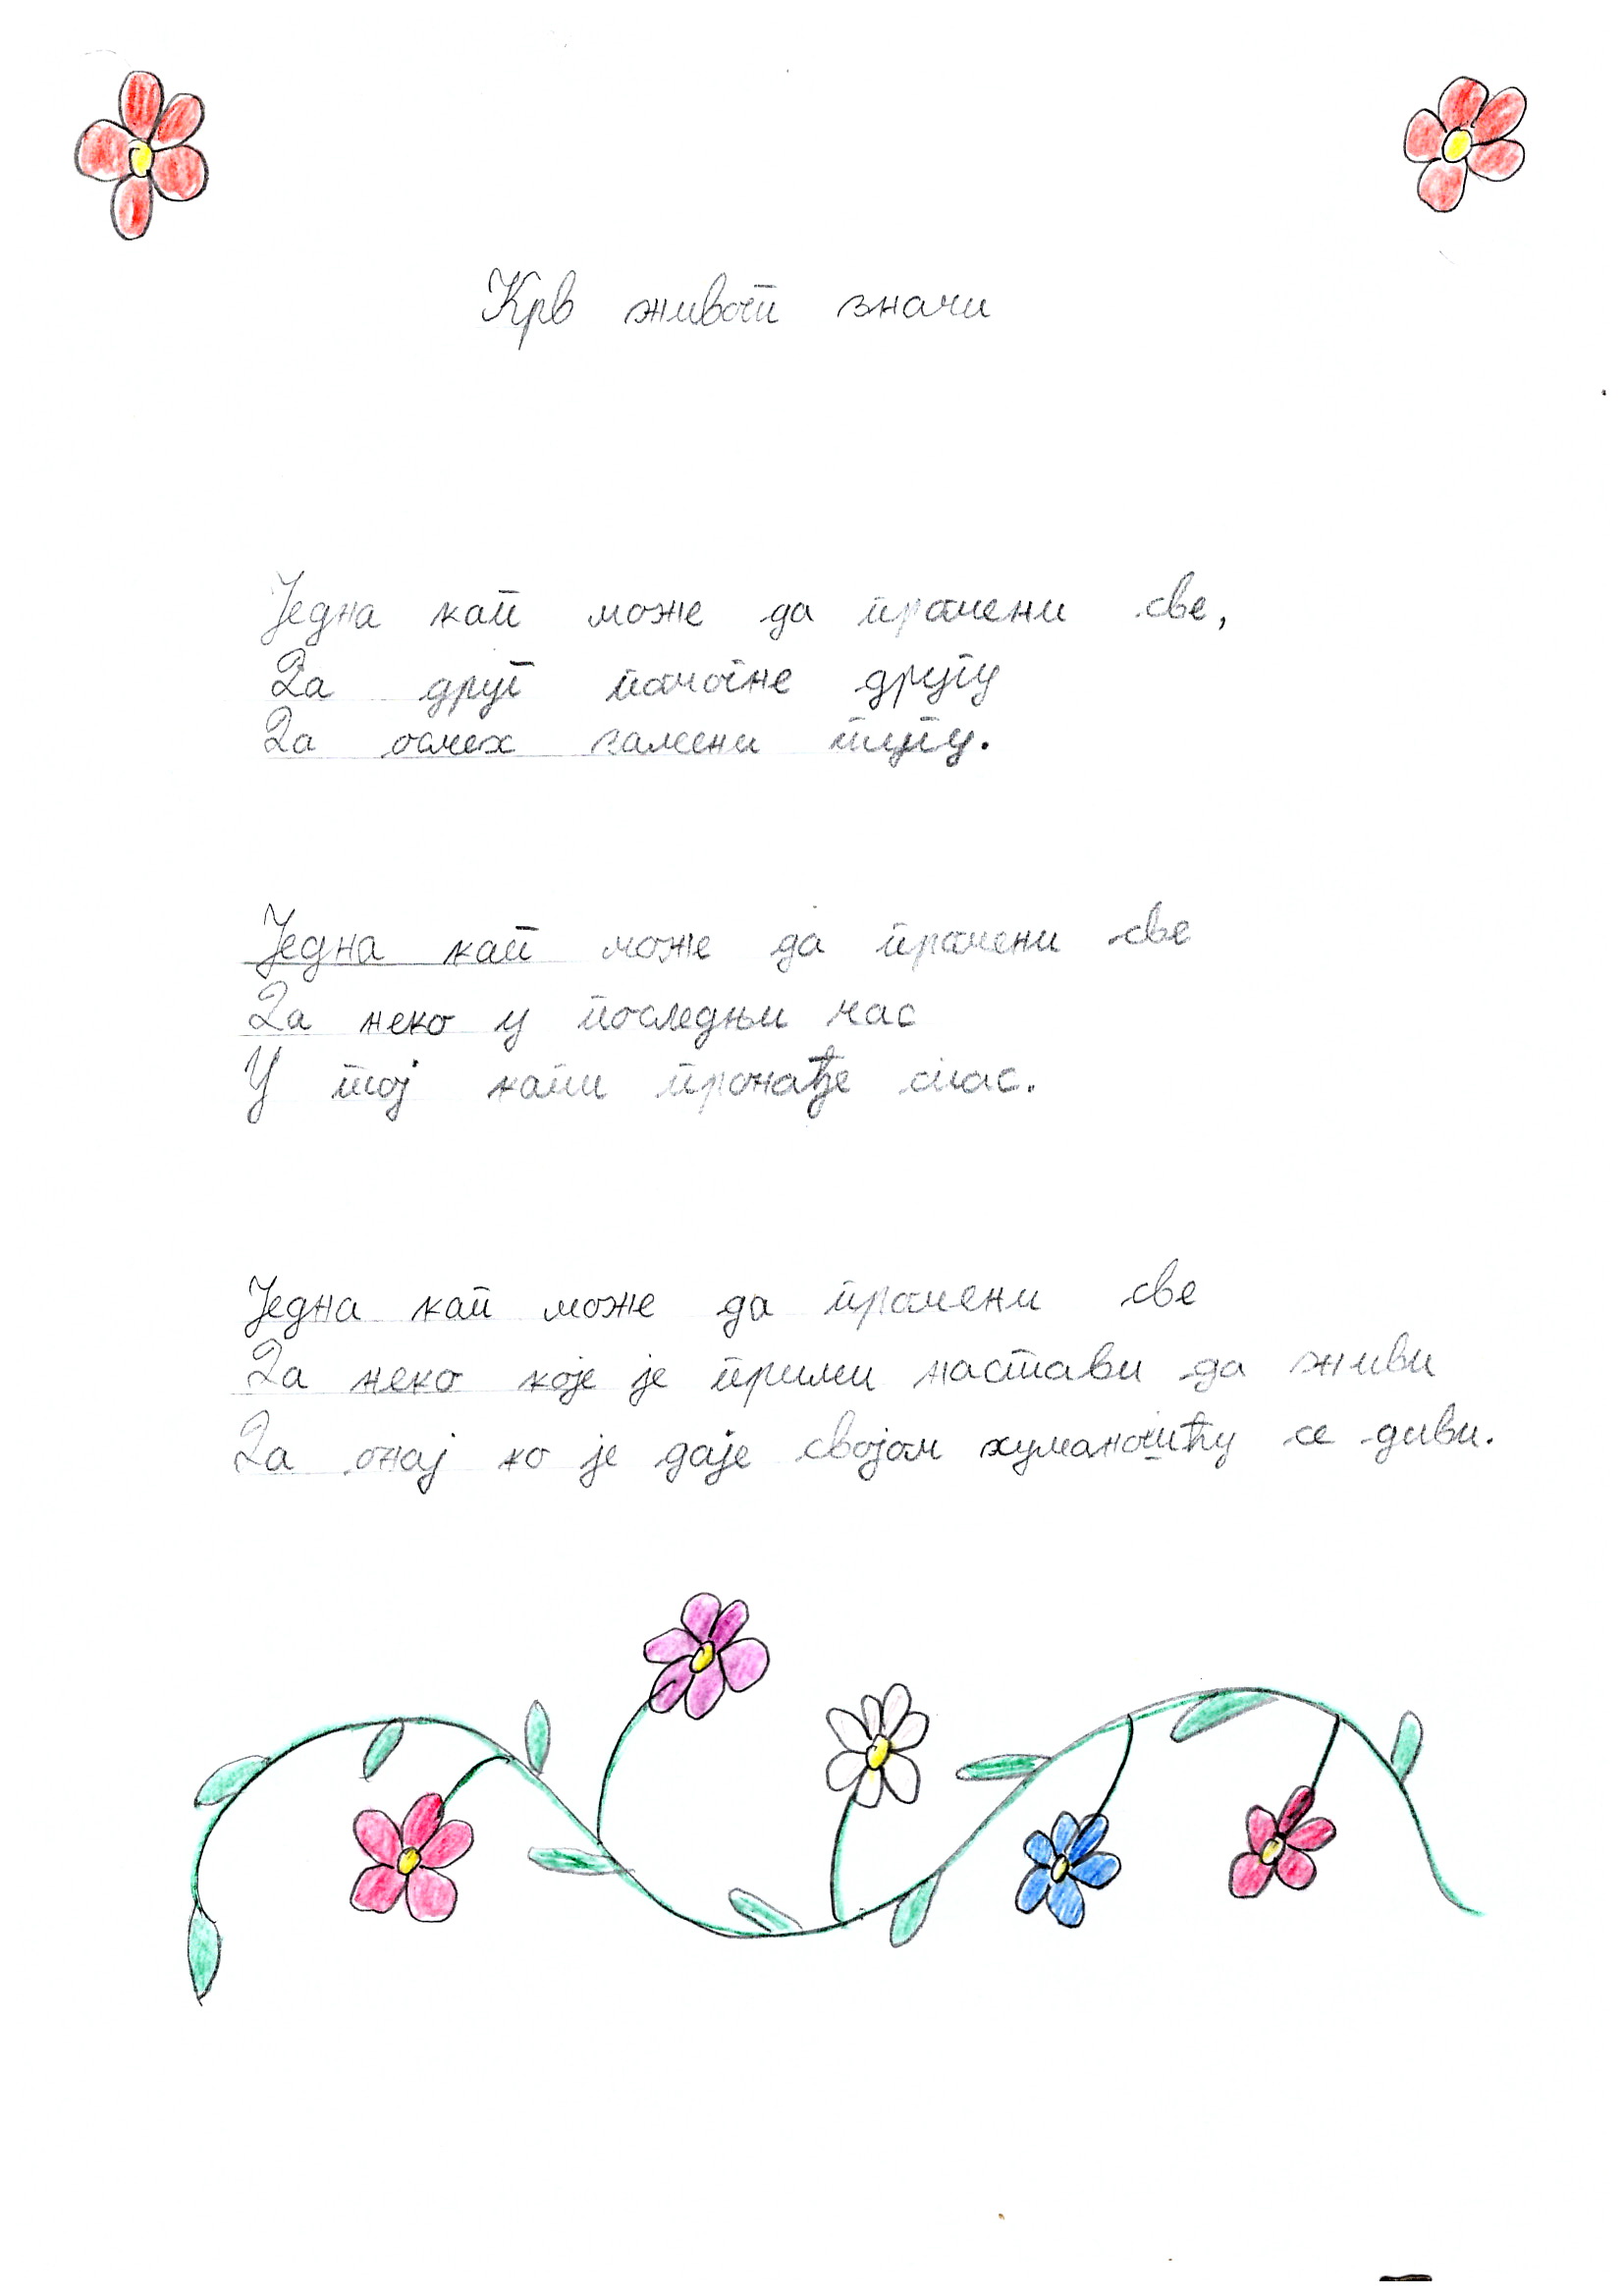 Крв живот значи
Једна кап може да промени све,
Да друг помогне другу
Да осмех замени тугу.
Једна кап може да промени све
Да неко у последњи час
У тој капи пронађе спас.
Једна кап може да промени све
Да неко које је прими настави да живи
Да онај ко је даје својом хуманошћу се диви.